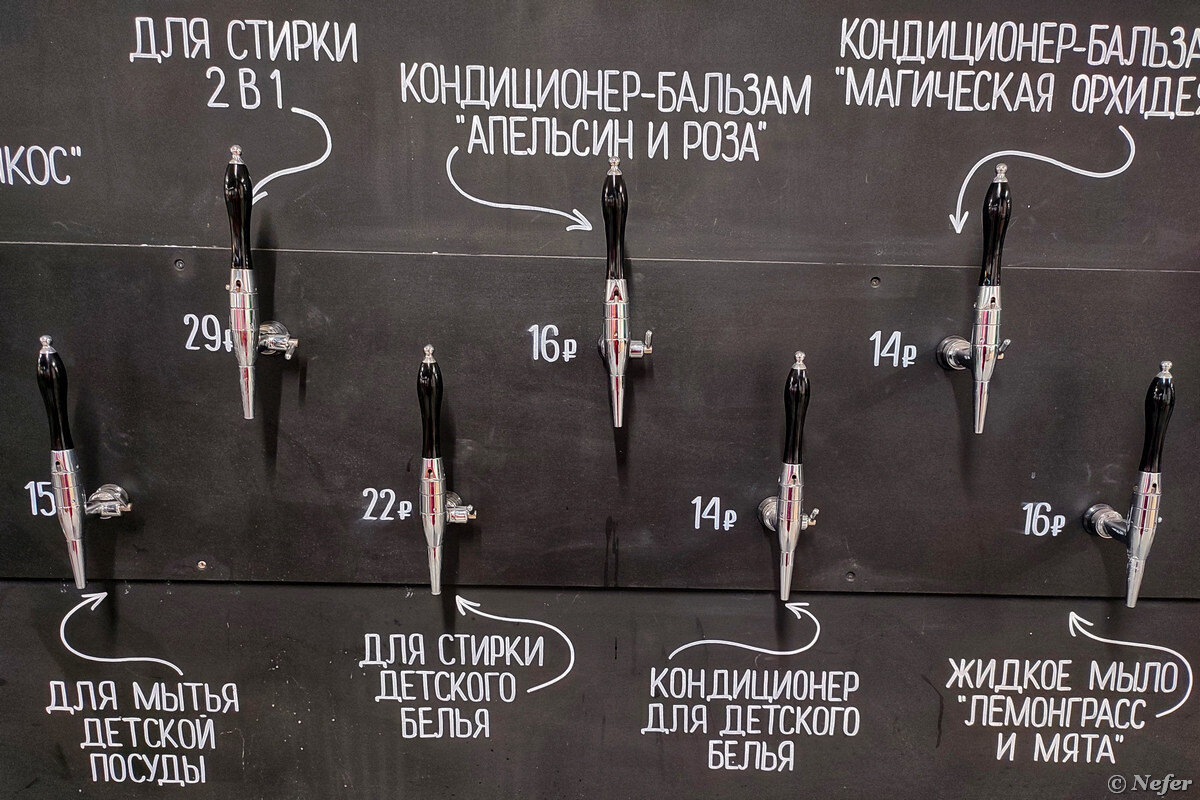 ДЛЯ СТИРКИ
2 В 1
КОНДИЦИОНЕР-БАЛЬЗАМ
"АПЕЛЬСИН И РОЗА"
КОНДИЦИОНЕР-БАЛЬЗА
"МАГИЧЕСКАЯ ОРХИДЕ
КОС"
29₽
16₽
14₽
15
22₽
14₽
16₽
ДЛЯ МЫТЬЯ
ДЕТСКОЙ
ПОСУДЫ
ДЛЯ СТИРКИ
ДЕТСКОГО
БЕЛЬЯ
КОНДИЦИОНЕР
ДЛЯ ДЕТСКОГО
БЕЛЬЯ
ЖИДКОЕ МЫЛО
"ЛЕМОНГРАСС
И МЯТА"
© Nefer